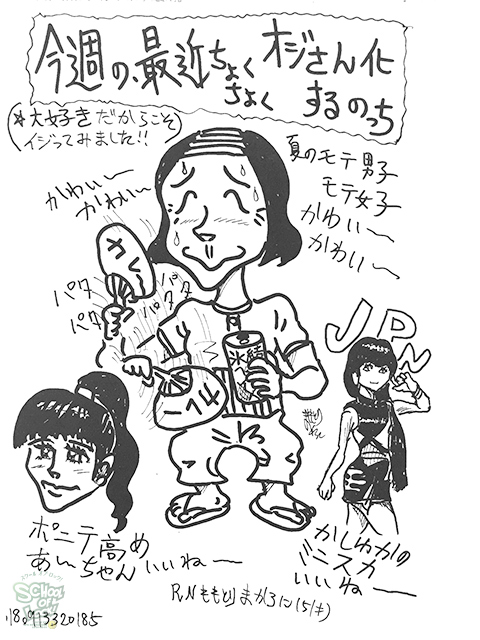 今週の、最近ちょく オジさん化
ちょく するのっち
*大好きだからこそ
イジってみました!!
夏のモテ男子
モテ女子
かわいー
かわいー
かわいー
かわいー
パタ
パタ
パタ
パタタ
氷結
JPN
ポニテ高め
あ〜ちゃん いいねー
かしゆかの
ミニスカ
いいねー
SCHOOL OF LOCK!